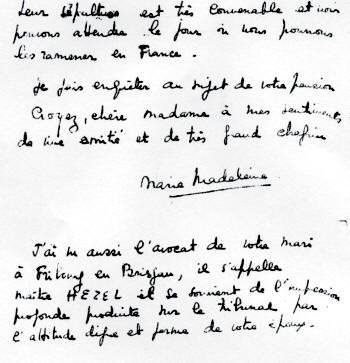 leur sépulture est très convenable et nous
pouvons attendre le jour où nous pourrons
les ramener en France.
Je fais enquêter au sujet de votre pension
Croyez, chère madame à mes sentiments
de vive amitié et de très grand chagrin
Marie Madeleine
J'ai vu aussi l'avocat de votre mari
à Fribourg en Brisgau, il s'appelle
maître HEZEL il se souvient de l'impression
profonde produite sur le tribunal par
l'attitude digne et ferme de votre époux.